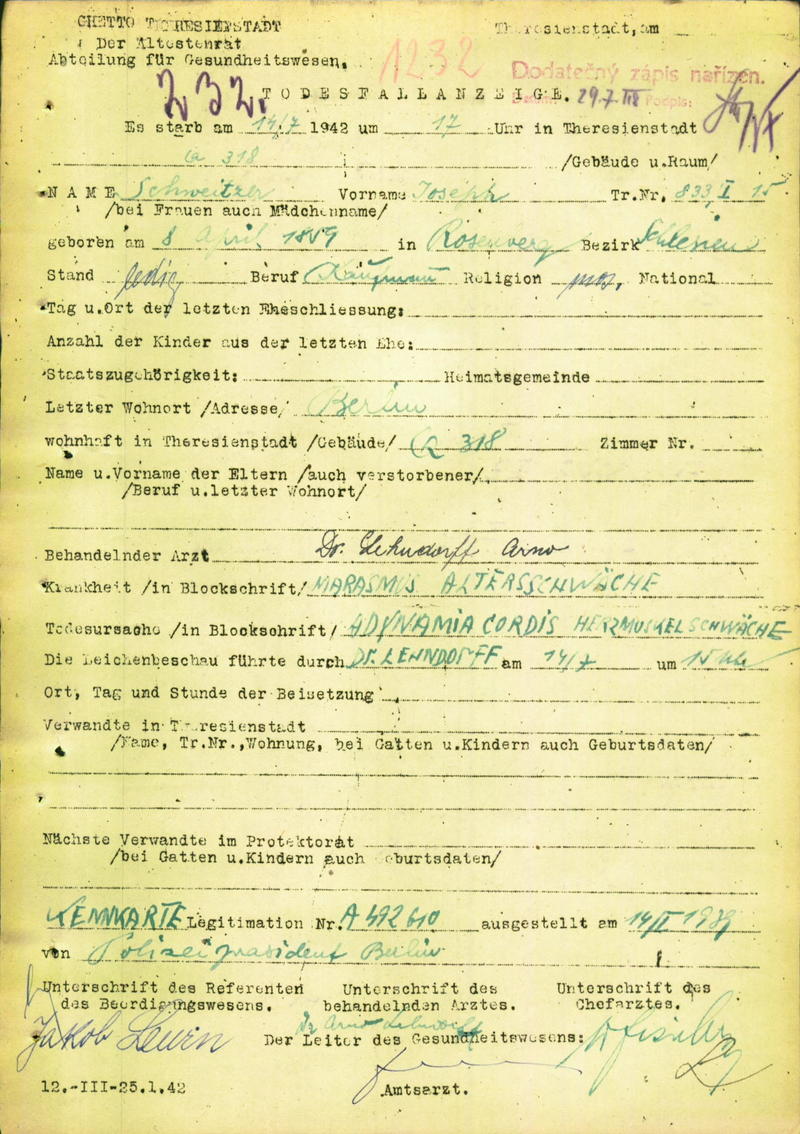 GHETTO THERESIENSTADT
Der Ältestenrat
Abteilung für Gesundheitswesen.
Theresienstadt, am
1232
Dodatečný zápis nařízen.
232.
TODESFALLANZEIGE.
29.7 III Podpis:
Es starb am 14/7. 1942 um 17 Uhr in Theresienstadt
Q 318 /Gebäude u.Raum/
NAME Schweitzer Vorname Joseph Tr.Nr. 833, I 15
/bei Frauen auch Mädchenname/
geboren am 8 April 1859 in Rosenberg Bezirk Schlesien
Stand ledig Beruf Kaufmann Religion mos. National
Tag u.Ort der letzten Eheschliessung:
Anzahl der Kinder aus der letzten Ehe:
Staatszugehörigkeit: Heimatsgemeinde
Letzter Wohnort /Adresse/ Berlin
wohnhaft in Theresienstadt /Gebäude/ Q 318 Zimmer Nr.
Name u.Vorname der Eltern /auch verstorbener/
/Beruf u.letzter Wohnort/
Behandelnder Arzt Dr. Lehndorff Arno
Krankheit /in Blockschrift/ MARASMUS ALTERSSCHWÄCHE
Todesursache /in Blockschrift/ ADYNAMIA CORDIS HERZMUSKELSCHWÄCHE
Die Leichenbeschau führte durch DR. LEHNDORFF am 14/7 um 15 Uhr
Ort, Tag und Stunde der Beisetzung
Verwandte in Theresienstadt
/Name, Tr.Nr.,Wohnung, bei Gatten u.Kindern auch Geburtsdaten/
Nächste Verwandte im Protektorat
/bei Gatten u.Kindern auch Geburtsdaten/
KENNKARTE Legitimation Nr. A 492610 ausgestellt am 14/II 1939
von Polizeipräsident Berlin
Unterschrift des Referenten des Beerdigungswesens.
Unterschrift des behandelnden Arztes.
Unterschrift des Chefarztes.
Jakob Lewin
Dr Arno Lehndorff
Der Leiter des Gesundheitswesens:
Amtsarzt.
12.-III-25.1.42